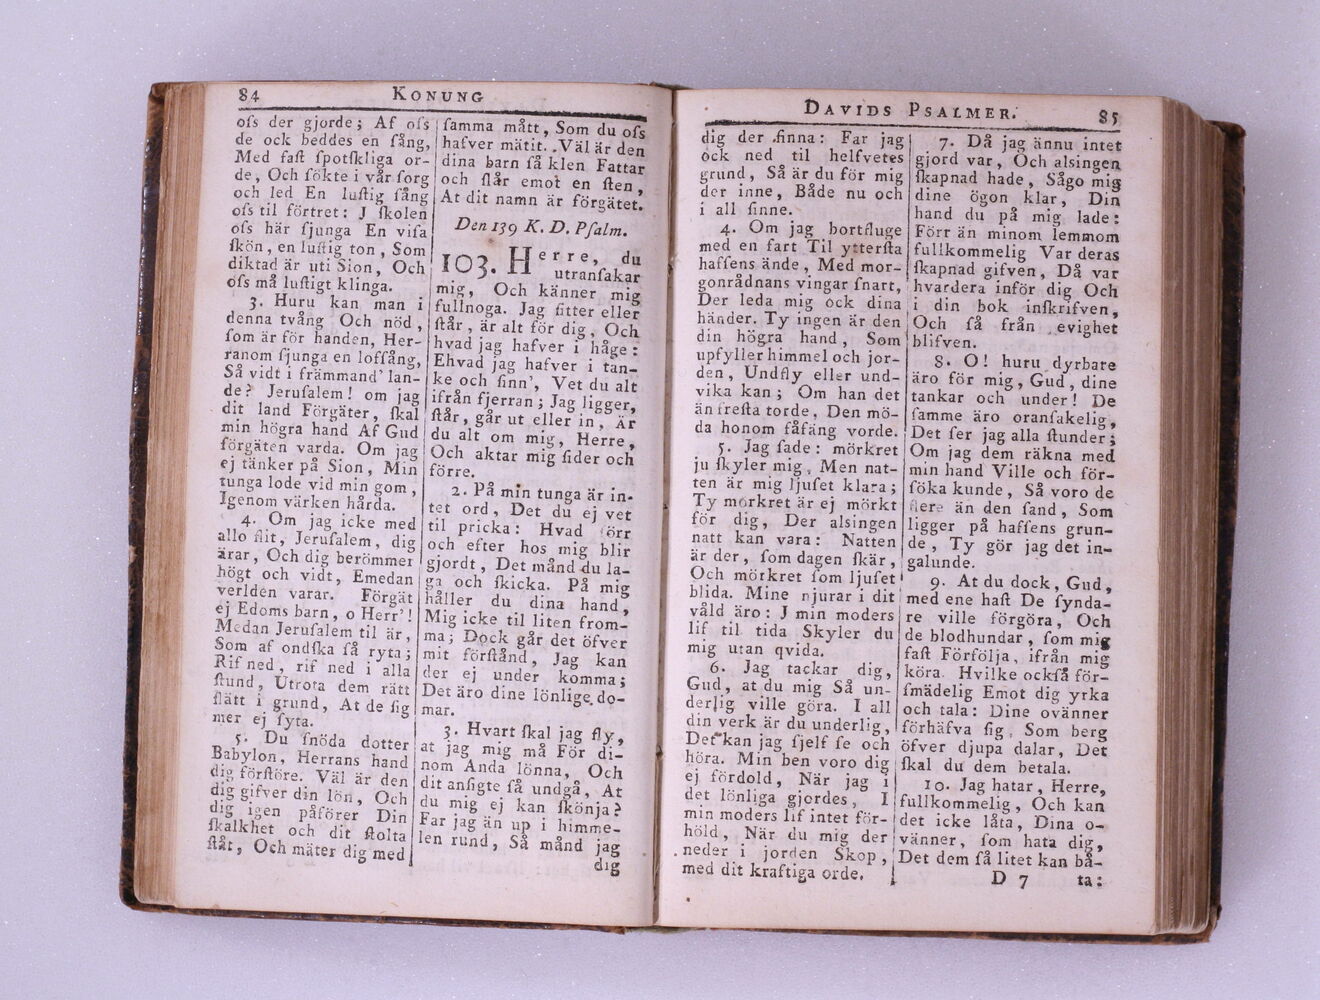 84
KONUNG
oſs der gjorde; Af oſs
de ock beddes en ſång,
Med faſt ſpotſkliga or-
de, Och ſökte i vår ſorg
och led En luſtig ſång
oſs til förtret: J ſkolen
oſs här ſjunga En viſa
ſkön, en luſtig ton, Som
diktad är uti Sion, Och
oſs må luſtigt klinga.
3. Huru kan man i
denna tvång Och nöd,
ſom är för handen, Her-
ranom ſjunga en lofſång,
Så vidt i främmand' lan-
de? Jeruſalem! om jag
dit land Förgäter, ſkal
min högra hand Af Gud
förgäten varda. Om jag
ej tänker på Sion, Min
tunga lode vid min gom,
Igenom värken hårda.
4. Om jag icke med
allo flit, Jeruſalem, dig
ärar, Och dig berömmer
högt och vidt, Emedan
verlden varar. Förgät
ej Edoms barn, o Herr'!
Medan Jeruſalem til är,
Som af ondſka få ryta;
Rif ned, rif ned i alla
ſtund, Utrota dem rätt
ſlätt i grund, At de ſig
mer ej ſyta.
5. Du ſnöda dotter
Babylon, Herrans hand
dig förſtöre. Väl är den
dig gifver din lön, Och
dig igen påförer Din
ſkalkhet och dit ſtolta
ſtåt, Och mäter dig med
ſamma mått, Som du oſs
hafver mätit. Väl är den
dina barn ſå klen Fattar
och ſlår emot en ſten,
At dit namn är förgätet.
Den 139 K. D. Pſalm.
103. Herre, du
utranſakar
mig, Och känner mig
fullnoga. Jag ſitter eller
ſtår, är alt för dig, Och
hvad jag hafver i håge:
Ehvad jag hafver i tan-
ke och ſinn', Vet du alt
ifrån fjerran; Jag ligger,
ſtår, går ut eller in, Är
du alt om mig, Herre,
Och aktar mig ſider och
förre.
2. På min tunga är in-
tet ord, Det du ej vet
til pricka: Hvad förr
och efter hos mig blir
gjordt, Det månd du la-
ga och ſkicka. På mig
håller du dina hand,
Mig icke til liten from-
ma; Dock går det öfver
mit förſtånd, Jag kan
der ej under komma;
Det äro dine lönlige do-
mar.
3. Hvart ſkal jag fly,
at jag mig må För di-
nom Anda lönna, Och
dit anſigte få undgå, At
du mig ej kan ſkönja?
Far jag än up i himme-
len rund, Så månd jag
dig
DAVIDS PSALMER.
85
dig der finna: Far jag
ock ned til helfvetes
grund, Så är du för mig
der inne, Både nu och
i all ſinne.
4. Om jag bortfluge
med en fart Til ytterſta
haffens ände, Med mor-
gonrådnans vingar ſnart,
Der leda mig ock dina
händer. Ty ingen är den
din högra hand, Som
upfyller himmel och jor-
den, Undfly eller und-
vika kan; Om han det
än freſta torde, Den mö-
da honom fåfäng vorde.
5. Jag ſade: mörkret
ju ſkyler mig, Men nat-
ten är mig ljuſet klara;
Ty mörkret är ej mörkt
för dig, Der alsingen
natt kan vara: Natten
är der, ſom dagen ſkär,
Och mörkret ſom ljuſet
blida. Mine njurar i dit
våld äro: J min moders
lif til tida Skyler du
mig utan qvida.
6. Jag tackar dig,
Gud, at du mig Så un-
derlig ville göra. I all
din verk är du underlig,
Det kan jag ſjelf ſe och
höra. Min ben voro dig
ej fördold, När jag i
det lönliga gjordes, I
min moders lif intet för-
höld, När du mig der
neder i jorden Skop,
med dit kraftiga orde.
7. Då jag ännu intet
gjord var, Och alsingen
ſkapnad hade, Sågo mig
dine ögon klar, Din
hand du på mig lade:
Förr än minom lemmom
fullkommelig Var deras
ſkapnad gifven, Då var
hvardera inför dig Och
i din bok inſkrifven,
Och ſå från evighet
blifven.
8. O! huru dyrbare
äro för mig, Gud, dine
tankar och under! De
ſamme äro oranſakelig,
Det ſer jag alla ſtunder;
Om jag dem räkna med
min hand Ville och för-
ſöka kunde, Så voro de
flere än den ſand, Som
ligger på haffens grun-
de, Ty gör jag det in-
galunde.
9. At du dock, Gud,
med ene haſt De ſynda-
re ville förgöra, Och
de blodhundar, ſom mig
faſt Förfölja, ifrån mig
köra. Hvilke ockſå för-
ſmädelig Emot dig yrka
och tala: Dine ovänner
förhäfva ſig, Som berg
öfver djupa dalar, Det
ſkal du dem betala.
10. Jag hatar, Herre,
fullkommelig, Och kan
det icke låta, Dina o-
vänner, ſom hata dig,
Det dem ſå litet kan bå-
D 7
ta: